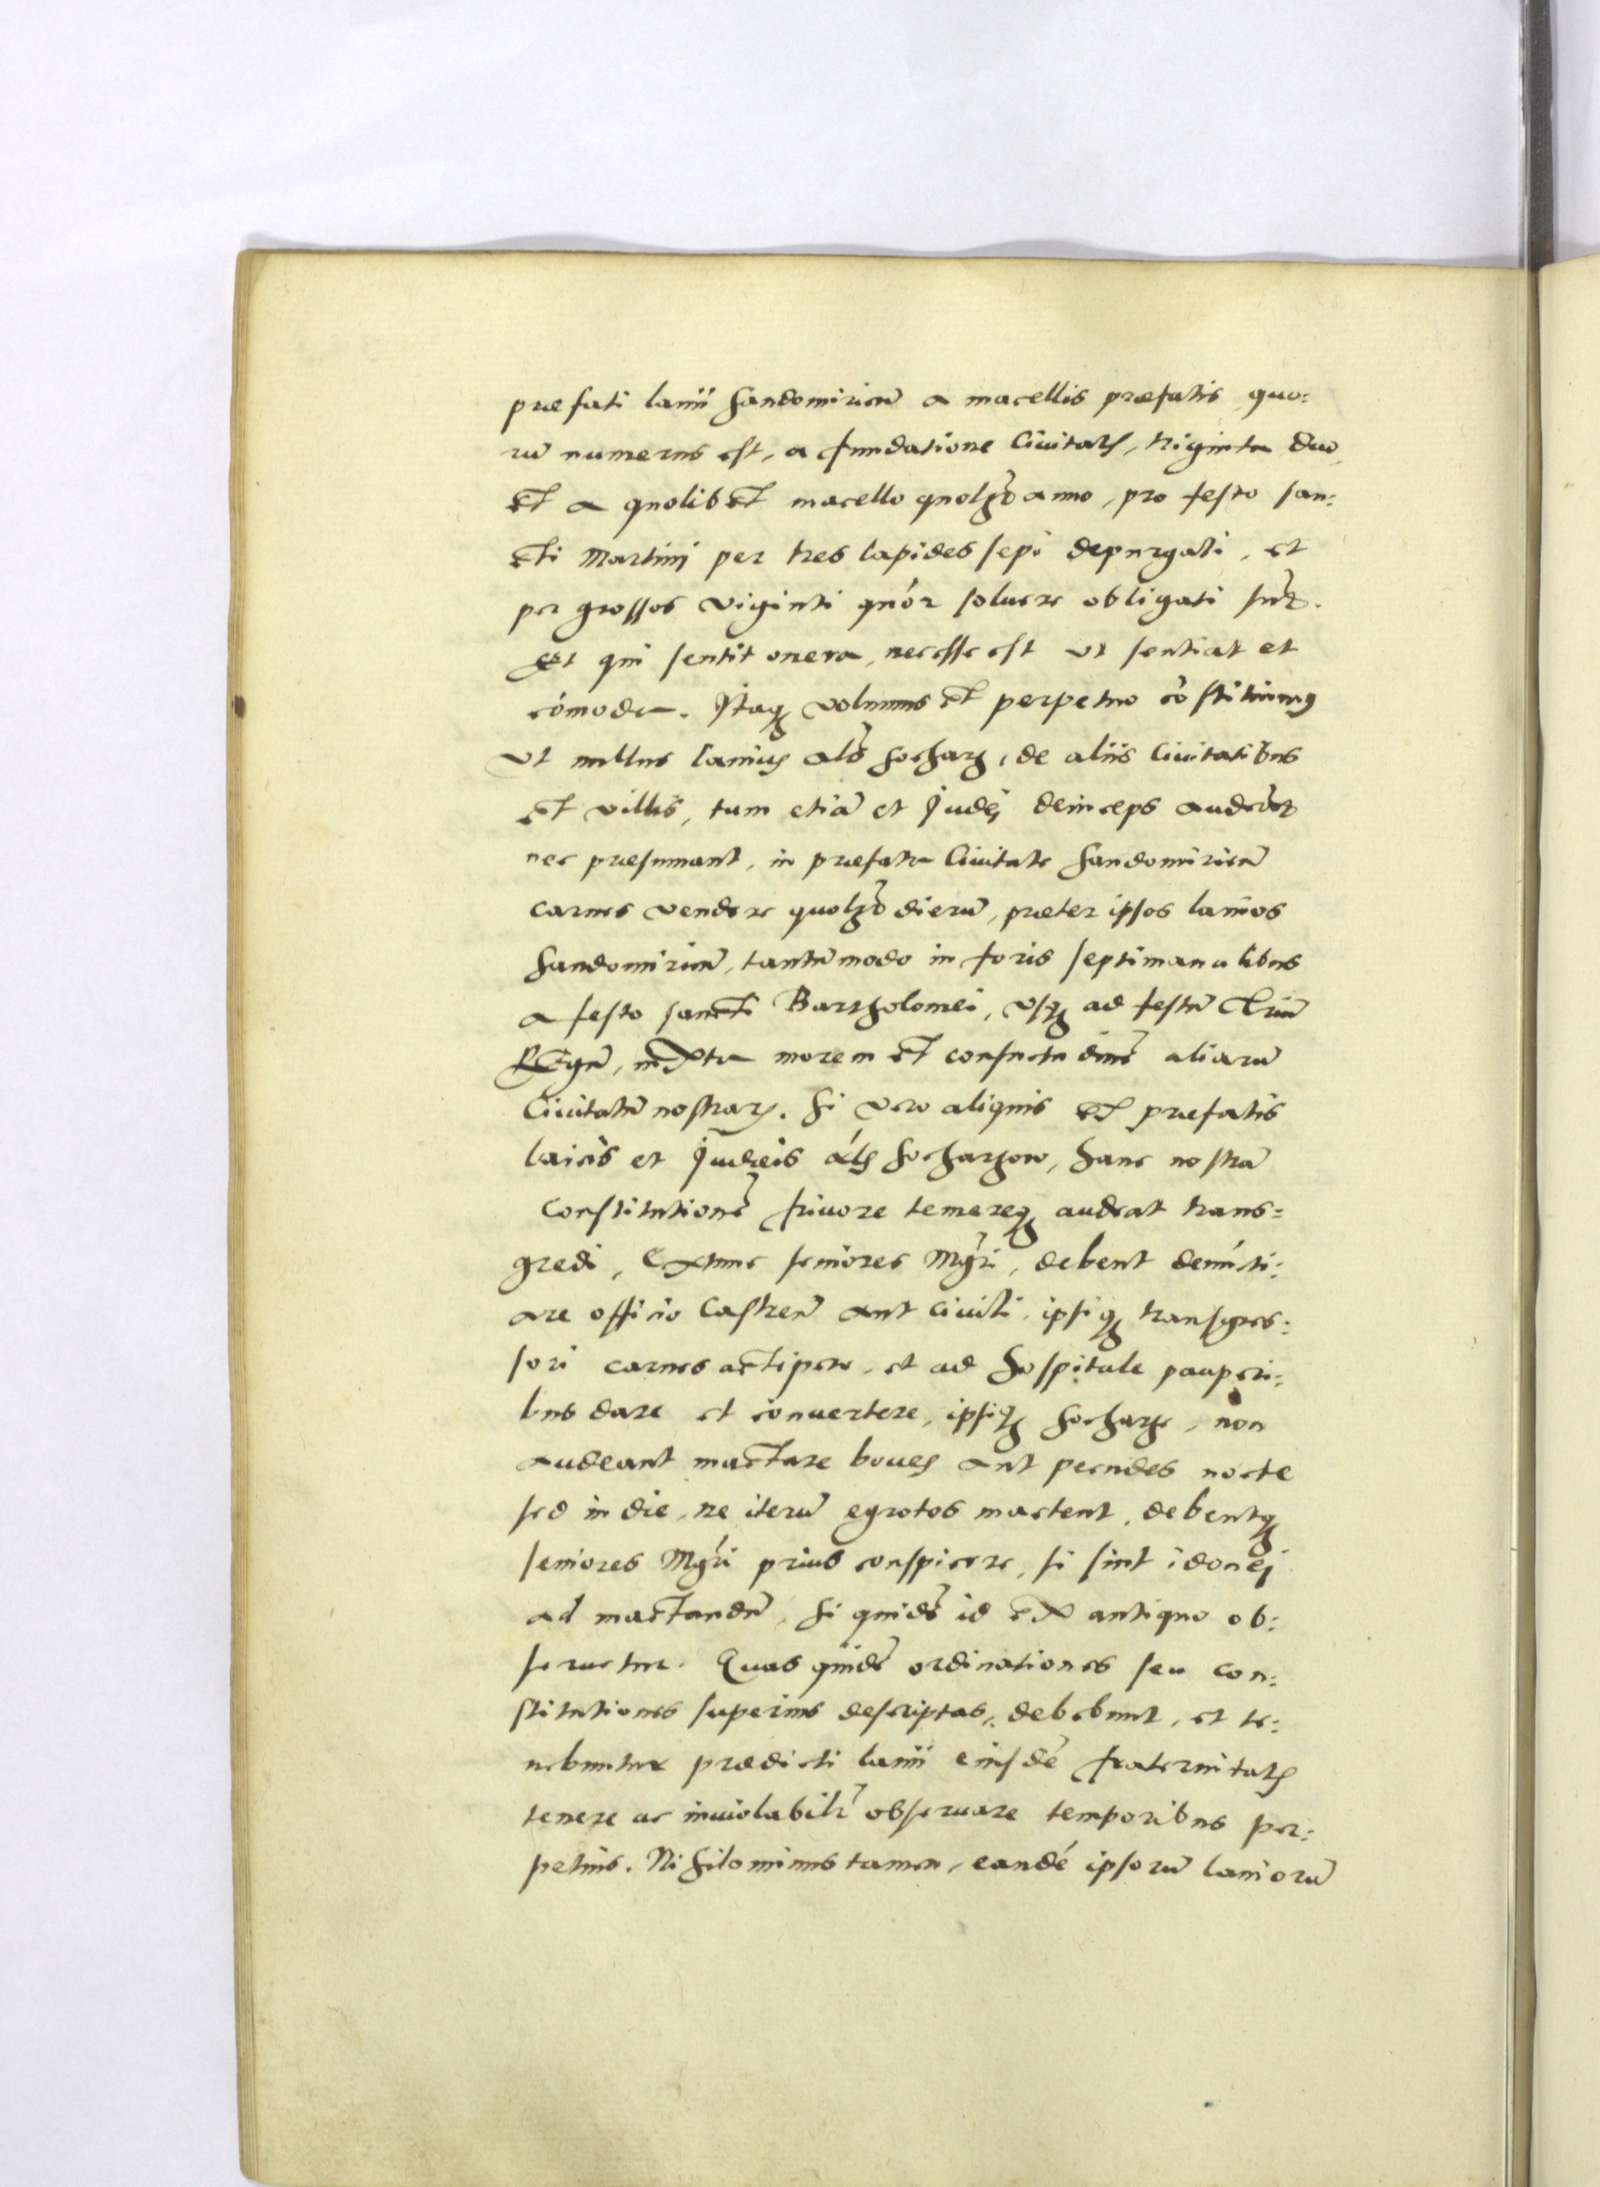 præfati lanii Sandomirieñ a macellis præfatis quo:
rū numerus est, a fundatione Ciuitatꝭ, triginta duo,
et a quolibet macello quolꝫt anno, pro festo san:
cti Martinj per tres lapides sepi depurgati, et
per grossos viginti quór soluere obligati sūt.
Et qui sentit onera, necesse est vt sentiat et
cōmoda. Itaqꝫ volumus et perpetuo cōstituimꝰ
vt nullus laniꝰ als Sochacz, de aliis Ciuitatibus
et villis, tum etiā et Judęj deinceps auderēt
nec præsumant, in præfata Ciuitate Sandomirieñ
carnes vendere quolꝫt dierū, præter ipsos lanios
Sandomirieñ, tantūmodo in foris septimanalibus
a festo sancti Bartholomei, vsqꝫ ad festū Triū
Regū, iuxta morem et consuetudinē aliarū
Ciuitatū nostrarꝝ. Si vero aliquis ex præfatis
laicis et Judæis als Sochaczow, hanc nostrā
Constitutionē friuore temereqꝫ audeat trans=
gredi, Extunc seniores Mgri, debent denūcti:
are officio Castreñ aut ciuili, ipsiqꝫ transgres:
sori carnes accipere, et ad hospitale pauperi:
bus dare et conuertere, ipsiqꝫ Sochacze, non
audeant mactare boues aut pecudes nocte
sed in die, ne iterū egrotos mactent, debentqꝫ
seniores Mgri prius conspicere, si sint idonej
ad mactandū, si quidē id ex antiquo ob:
seruetur. Quas quidē ordinationes seu con:
stitutiones superius descriptas, debebunt, et te:
nebuntur prædicti lanii eiusdē fraternitatꝭ
tenere ac inuiolabilr obseruare temporibus per:
petuis. Nihilominus tamen, eandē ipsorū laniorū